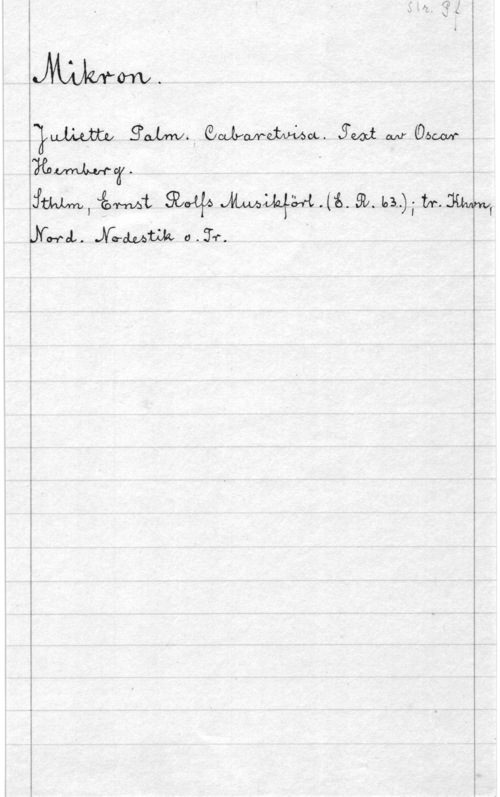 Mikron.
Juliette Palm. Cabaretvisa. Text av Oscar
Hemberg.
Sthlm, Ernst Rolfs Musikförl. (E. R. 63.); tr. Khvn,
Nord. Nodestik o. Tr.